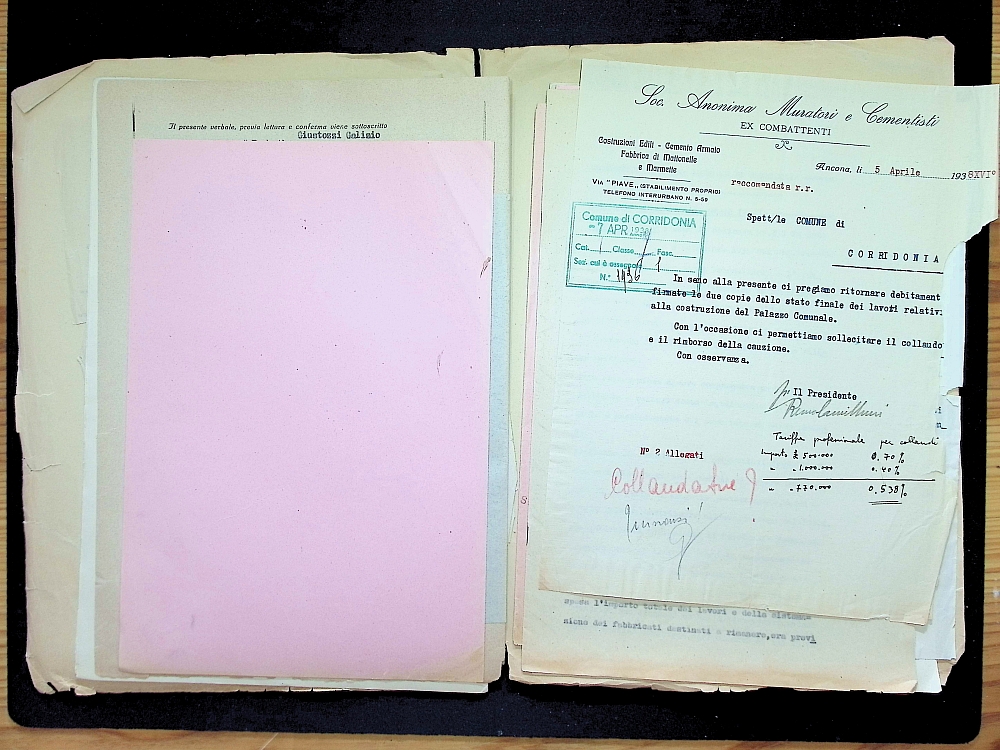 Il presente verbale, previa lettura e conferma viene sottoscritto
Giustozzi Galizio
Soc. Anonima Muratori e Cementisti
EX COMBATTENTI
Costruzioni Edili - Cemento Armato
Fabbrica di Mattonelle
e Marmette
VIA "PIAVE,, (STABILIMENTO PROPRIO)
TELEFONO INTERURBANO N. 5-59
Ancona, li 5 Aprile 1938XVI°
raccomandata r.r.
Spett/le COMUNE di
CORRIDONIA
Comune di CORRIDONIA
- 7 APR. 1938
Cat. Classe Fasc.
Sez. cui è assegnato 1
N.° 1936
In seno alla presente ci pregiamo ritornare debitament
firmate le due copie dello stato finale dei lavori relativi
alla costruzione del Palazzo Comunale.
Con l'occasione ci permettiamo sollecitare il collaudo
e il rimborso della cauzione.
Con osservanza.
Il Presidente
N° 2 Allegati
Tariffa professionale per collaudi
Importo £ 500.000 0.70%
" - 1.000.000 0.40%
" - 770.000 0.538%
Collaudatore ?
spesa l'importo totale dei lavori e della sistema=
zione dei fabbricati destinati a rimanere, ora provi